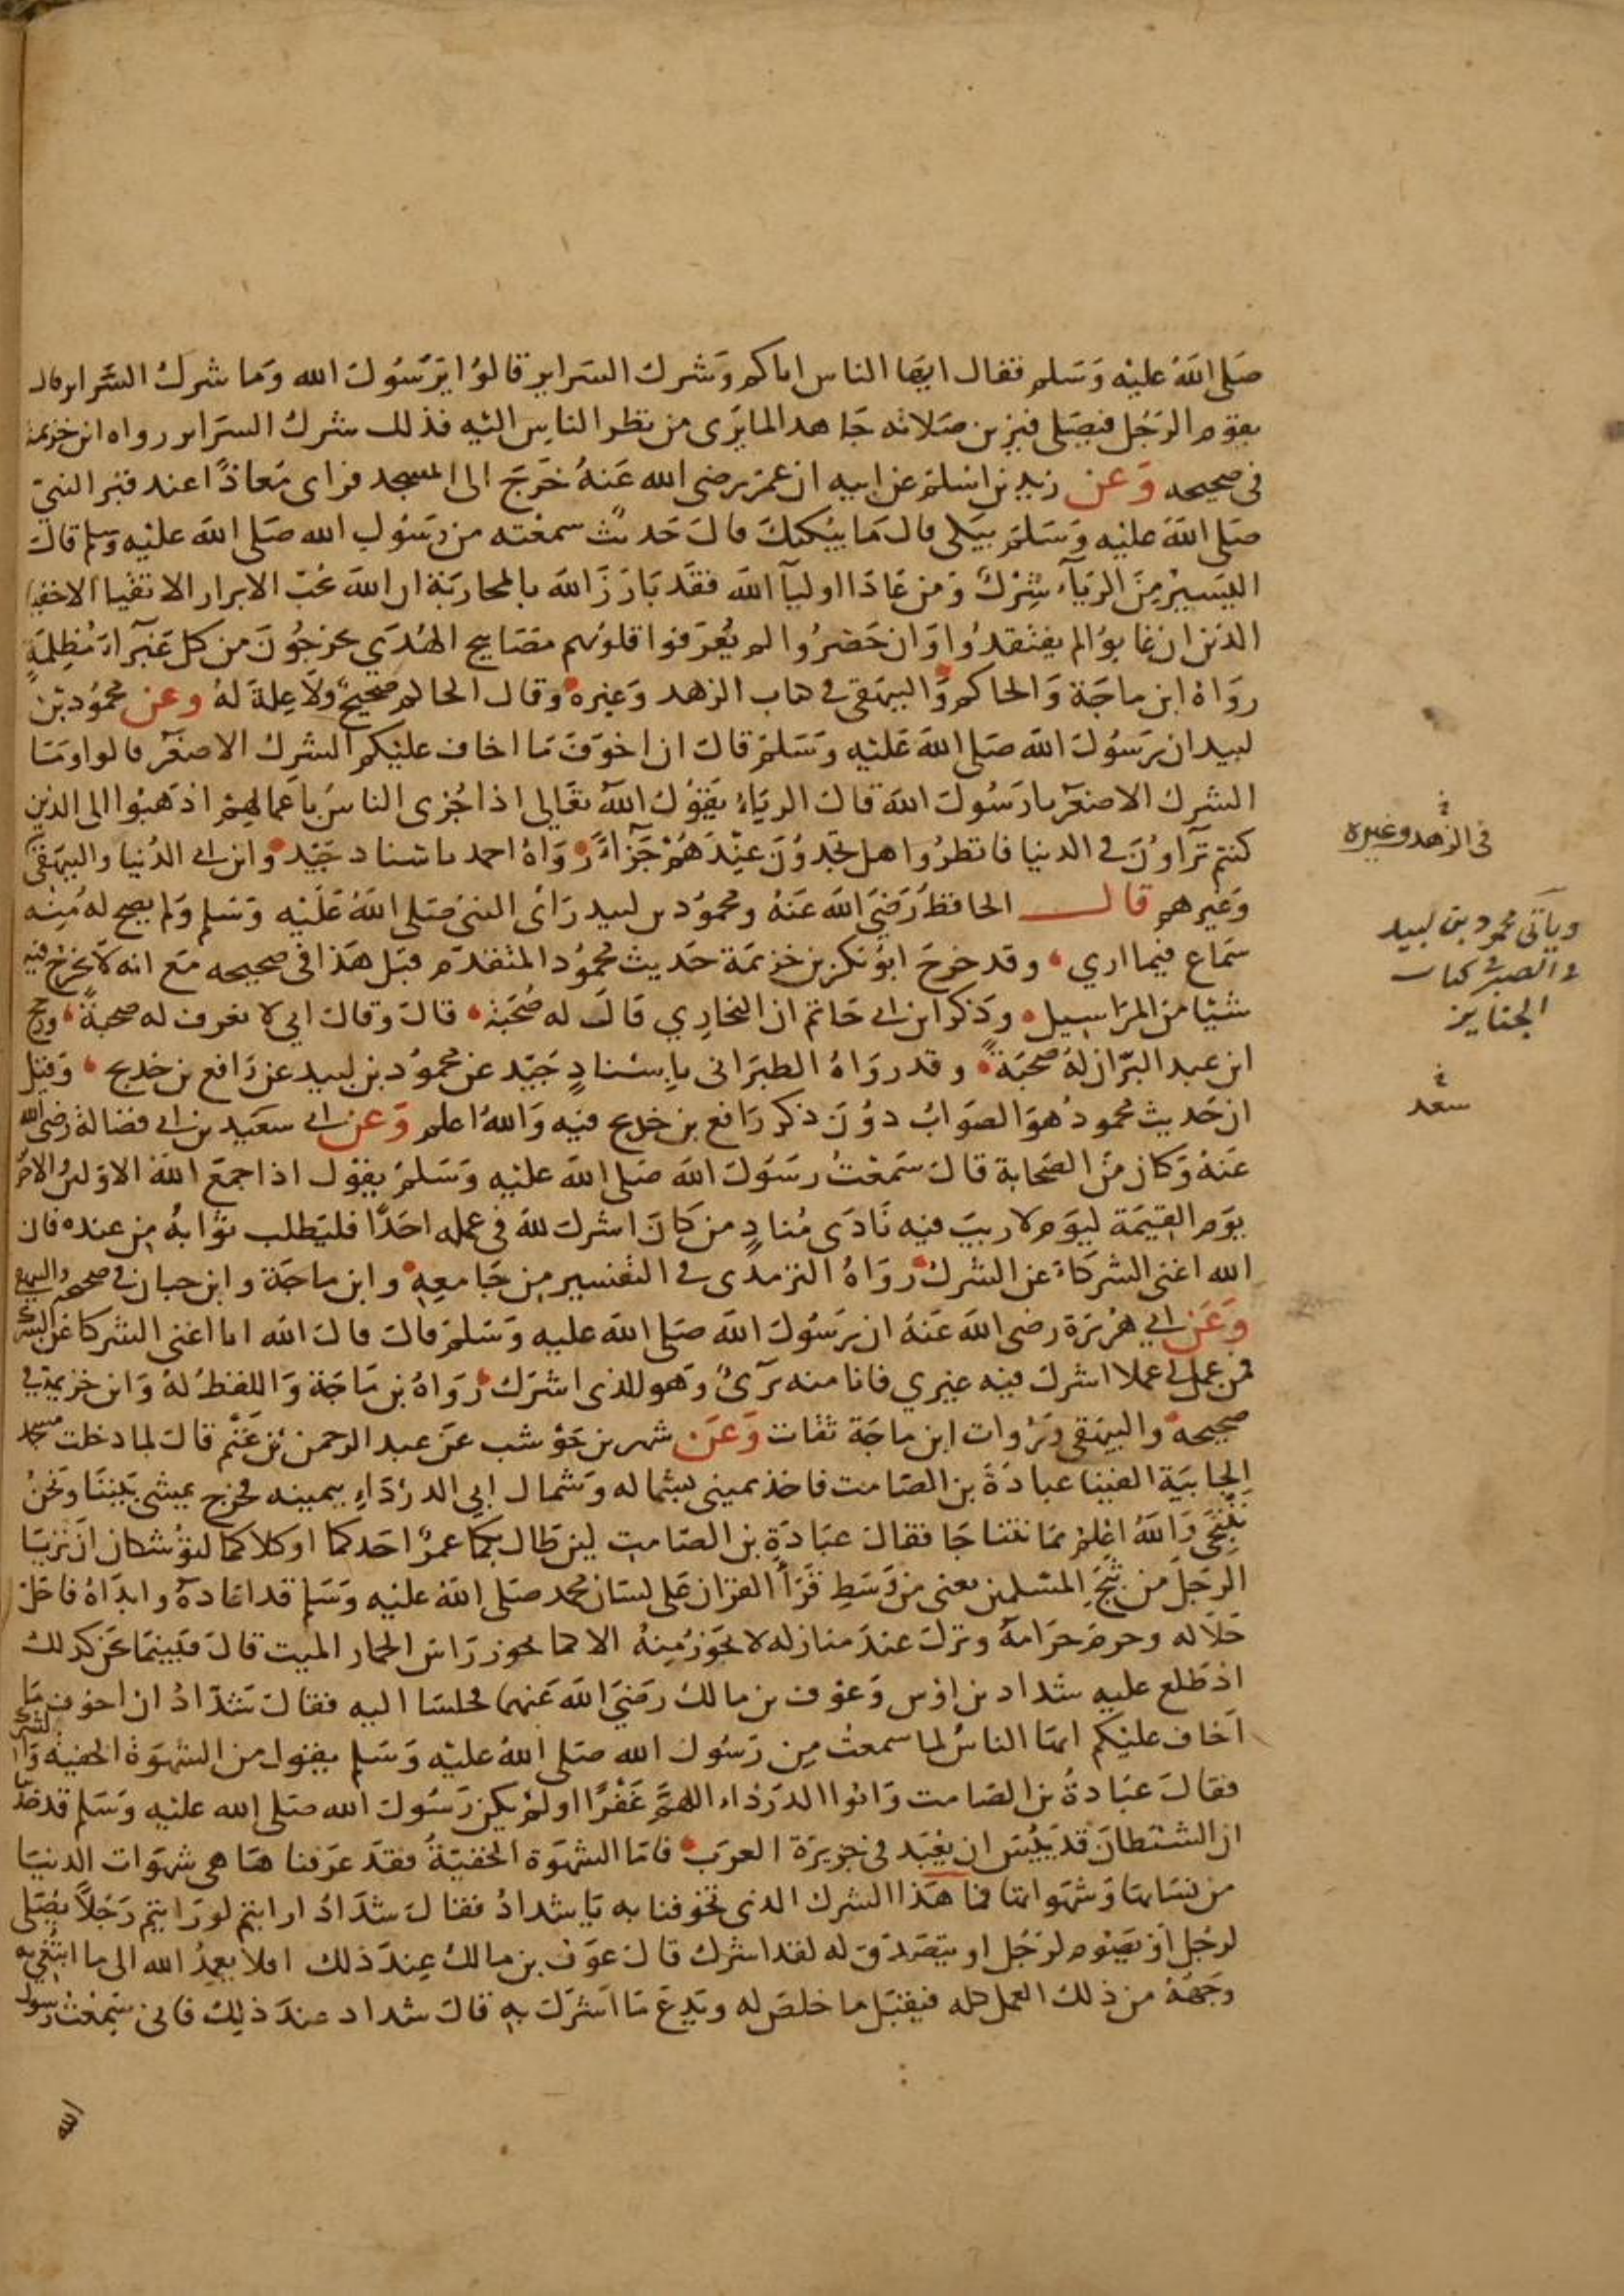 صلى الله عليه وسلم فقال ايها الناس اياكم وشرك السراير قالوا يرسول الله وما شرك السراير قال
يقوم الرجل فيصلي فيزين صلاته جاهدا لما يرى من نظر الناس اليه فذلك شرك السراير رواه ابن خزيمة
في صحيحه وعن زيد بن اسلم عن ابيه ان عمر رضي الله عنه خرج الى المسجد فراى معاذا عند قبر النبي
صلى الله عليه وسلم يبكي قال ما يبكيك قال حديث سمعته من رسول الله صلى الله عليه وسلم قال
اليسير من الرياء شرك ومن عادا اوليآ الله فقد بارز الله بالمحاربة ان الله يحب الابرار الاتقيا الاخفيا
الذين ان غابوا لم يفتقدوا وان حضروا لم يعرفوا قلوبهم مصابيح الهدى يخرجون من كل غبرآء مظلمة
رواه ابن ماجة والحاكم والبيهقي في كتاب الزهد وغيره وقال الحاكم صحيح ولا علة له وعن محمود بن
لبيد ان رسول الله صلى الله عليه وسلم قال ان اخوف ما اخاف عليكم الشرك الاصغر قالوا وما
الشرك الاصغر يا رسول الله قال الرياء يقول الله تعالى اذا جزى الناس باعمالهم اذهبوا الى الذين
كنتم تراون في الدنيا فانظروا هل تجدون عندهم جزاء رواه احمد باسناد جيد وابن ابي الدنيا والبيهقي
وغيرهم قال الحافظ رضي الله عنه ومحمود بن لبيد راى النبي صلى الله عليه وسلم ولم يصح له منه
سماع فيما اري وقد خرج ابو بكر بن خزيمة حديث محمود المتقدم قبل هذا في صحيحه مع انه لا يخرج فيه
شيئا من المراسيل وذكر ابن ابي حاتم ان البخاري قال له صحبة قال وقال ابي لا نعرف له صحبة ورجح
ابن عبد البر ان له صحبة وقد رواه الطبراني باسناد جيد عن محمود بن لبيد عن رافع بن خديج وقيل
ان حديث محمود هو الصواب دون ذكر رافع بن خديج فيه والله اعلم وعن ابي سعيد بن ابي فضالة رضي الله
عنه وكان من الصحابة قال سمعت رسول الله صلى الله عليه وسلم يقول اذا جمع الله الاولين والاخر
يوم القيمة ليوم لا ريب فيه نادى مناد من كان اشرك لله في عمله احدا فليطلب ثوابه من عنده فان
الله اغنى الشركاء عن الشرك رواه الترمذي في التفسير من جامعه وابن ماجة وابن حبان في صحيحه والبيهقي
وعن ابي هريرة رضي الله عنه ان رسول الله صلى الله عليه وسلم قال قال الله انا اغنى الشركا عن الشرك
فمن عمل لي عملا اشرك فيه غيري فانا منه بريء وهو للذي اشرك رواه بن ماجة واللفظ له وابن خزيمة في
صحيحه والبيهقي ورواة ابن ماجة ثقات وعن شهر بن حوشب عن عبد الرحمن بن غنم قال لما دخلت مسجد
الجابية الفينا عبادة بن الصامت فاخذ يميني بشماله وشمال ابي الدرداء بيمينه فخرج يمشي بيننا ونحن
ننتجي والله اعلم بما نتناجا فقال عبادة بن الصامت لين طال بكما عمر احدكما او كلاكما لتوشكان ان تريا
الرجل من ثبج المسلمين يعني من وسط قرأ القران على لسان محمد صلى الله عليه وسلم قد اعاده وابداه فاحل
حلاله وحرم حرامه ونزل عند منازله لا يحوز منه الا كما يحوز راس الحمار الميت قال فبينما نحن كذلك
اذ طلع عليه شداد بن اوس وعوف بن مالك رضي الله عنهما فجلسا اليه فقال شداد ان اخوف ما
اخاف عليكم ايها الناس لما سمعت من رسول الله صلى الله عليه وسلم يقول من الشهوة الخفية والشرك
فقال عبادة بن الصامت وابوا الدرداء اللهم غفرا اولم يكن رسول الله صلى الله عليه وسلم قد حدثنا
ان الشيطان قد يئس ان يعبد في جزيرة العرب فاما الشهوة الخفية فقد عرفناها هي شهوات الدنيا
من نسايها وشهواتها فما هذا الشرك الذي تخوفنا به يا شداد فقال شداد ارايتم لو رايتم رجلا يصلي
لرجل او يصوم لرجل او يتصدق له لقد اشرك قال عوف بن مالك عند ذلك افلا يعمد الله الى ما ابتغي به
وجهه من ذلك العمل كله فيقبل ما خلص له ويدع ما اشرك به قال شداد عند ذلك فاني سمعت رسول
الله
في الزهد وغيره
وياتي محمود بن لبيد
في الصبر في كتاب
الجنايز
سعد